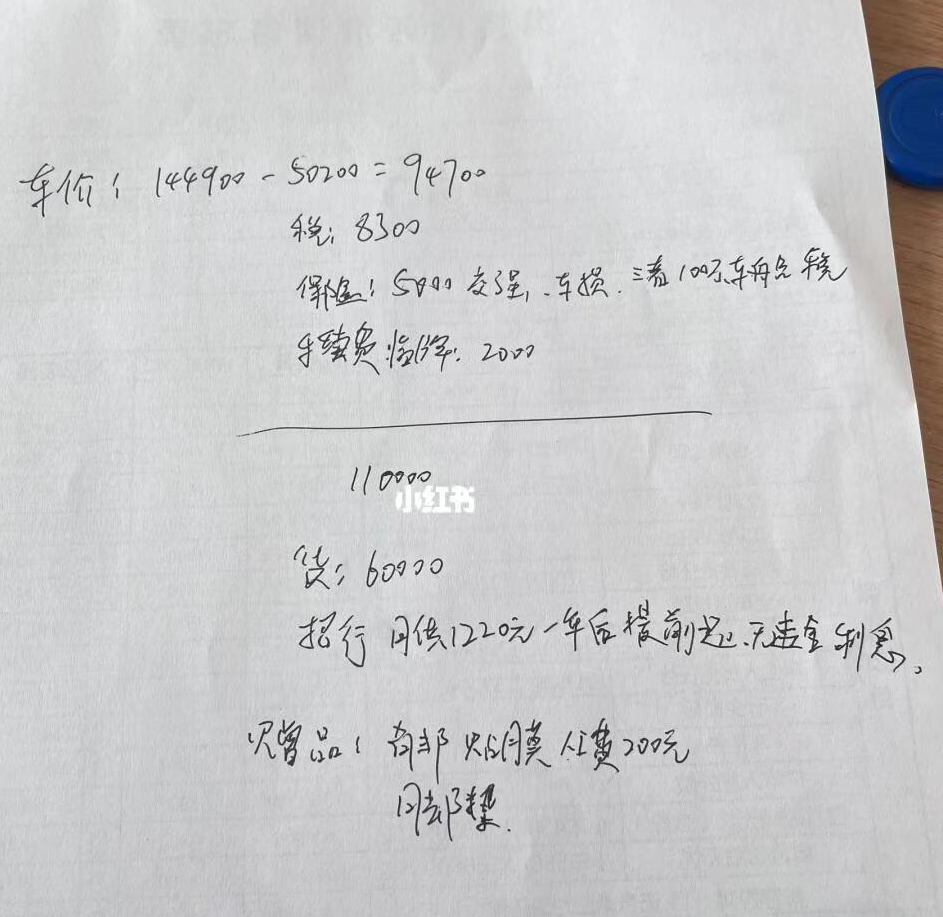 车价: 144900 - 50200 = 94700
税: 8300
保险: 5000 交强、车损、三者100万、车船税
手续费 临牌: 2000
110000
小红书
贷: 60000
招行 月供1220元 一年后提前还、无违金利息。
赠品: 贴膜 人工费200元
脚垫.